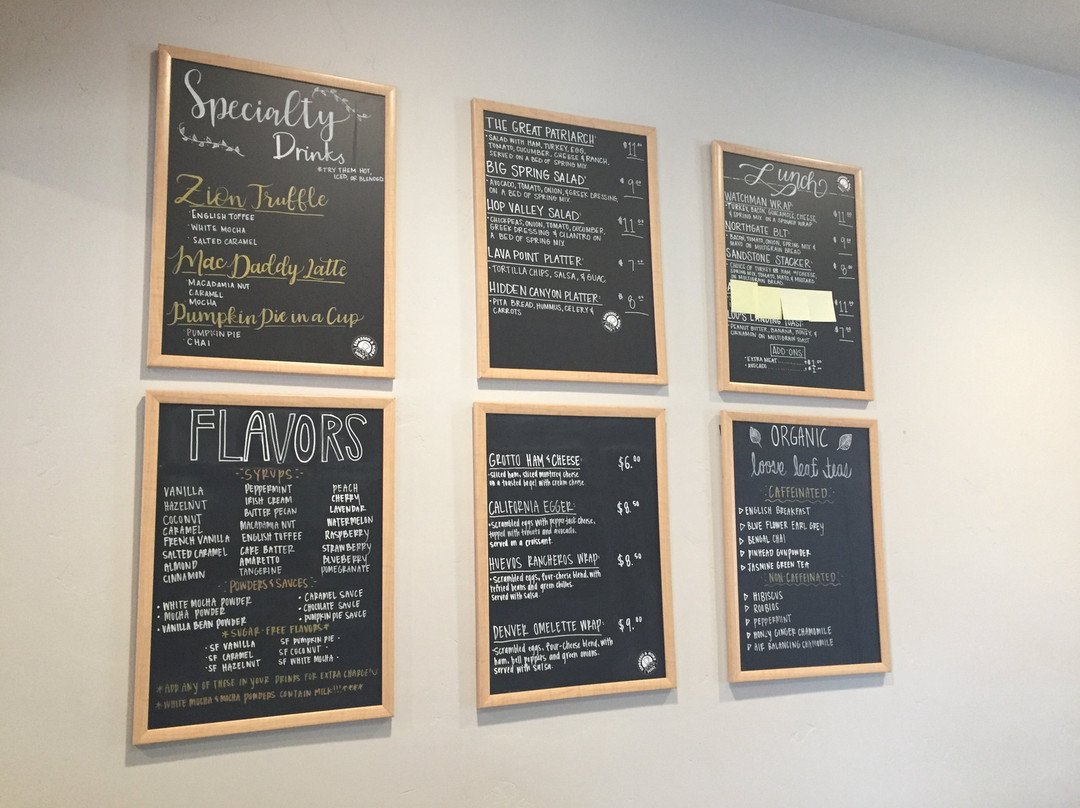 Specialty
Drinks
*TRY THEM HOT,
ICED, OR BLENDED
Zion Truffle
•ENGLISH TOFFEE
WHITE MOCHA
•SALTED CARAMEL
Mac Daddy Latte
MACADAMIA NUT
CARAMEL
•MOCHA
Pumpkin Pie in a Cup
•PUMPKIN PIE
•CHAI
THE GREAT PATRIARCH
•SALAD WITH HAM, TURKEY, EGG,
TOMATO, CUCUMBER, CHEESE & RANCH,
SERVED ON A BED OF SPRING MIX
$11
BIG SPRING SALAD
•AVOCADO, TOMATO, ONION, &GREEK DRESSING
ON A BED OF SPRING MIX
$9
HOP VALLEY SALAD
•CHICKPEAS, ONION, TOMATO, CUCUMBER,
GREEK DRESSING & CILANTRO ON
A BED OF SPRING MIX
$11
LAVA POINT PLATTER
•TORTILLA CHIPS, SALSA, & GUAC
$7
HIDDEN CANYON PLATTER
•PITA BREAD, HUMMUS, CELERY &
CARROTS
$8
Lunch
WATCHMAN WRAP
•TURKEY, BACON, GUACAMOLE, CHEESE,
& SPRING MIX ON A SPINACH WRAP
$11
NORTHGATE BLT
•BACON, TOMATO, ONION, SPRING MIX &
MAYO ON MULTIGRAIN BREAD
$9
SANDSTONE STACKER
•CHOICE OF TURKEY OR HAM W/CHEESE,
SPRING MIX, TOMATO, MAYO, & MUSTARD
ON MULTIGRAIN BREAD
$8
$11
LANDING TOAST
•PEANUT BUTTER, BANANA, HONEY, &
CINNAMON ON MULTIGRAIN TOAST
$7
ADD ONS
•EXTRA MEAT
•AVOCADO
FLAVORS
SYRUPS
VANILLA
HAZELNUT
COCONUT
CARAMEL
FRENCH VANILLA
SALTED CARAMEL
ALMOND
CINNAMON
PEPPERMINT
IRISH CREAM
BUTTER PECAN
MACADAMIA NUT
ENGLISH TOFFEE
CAKE BATTER
AMARETTO
TANGERINE
PEACH
CHERRY
LAVENDAR
WATERMELON
RASPBERRY
STRAWBERRY
BLUEBERRY
POMEGRANATE
POWDERS & SAUCES
• WHITE MOCHA POWDER
• MOCHA POWDER
• VANILLA BEAN POWDER
• CARAMEL SAUCE
• CHOCOLATE SAUCE
• PUMPKIN PIE SAUCE
*SUGAR-FREE FLAVORS*
• SF VANILLA
• SF CARAMEL
• SF HAZELNUT
SF PUMPKIN PIE •
SF COCONUT •
SF WHITE MOCHA •
*ADD ANY OF THESE IN YOUR DRINKS FOR EXTRA CHARGE!
*WHITE MOCHA & MOCHA POWDERS CONTAIN MILK!!!****
GROTTO HAM & CHEESE
•sliced ham, sliced monterey cheese
on a toasted bagel with cream cheese
$6.00
CALIFORNIA EGGER
•scrambled eggs with pepper-jack cheese,
topped with tomato and avocado.
served on a croissant.
$8.50
HUEVOS RANCHEROS WRAP
• scrambled eggs, four-cheese blend, with
refried beans and green chilies.
served with salsa
$8.50
DENVER OMELETTE WRAP
•Scrambled eggs, four-cheese blend, with
ham, bell peppers and green onions.
served with salsa.
$9.00
ORGANIC
loose leaf teas
CAFFEINATED
ENGLISH BREAKFAST
BLUE FLOWER EARL GREY
BENGAL CHAI
PINHEAD GUNPOWDER
JASMINE GREEN TEA
NON-CAFFEINATED
HIBISCUS
ROOIBOS
PEPPERMINT
HONEY GINGER CHAMOMILE
AIR BALANCING CHAMOMILE